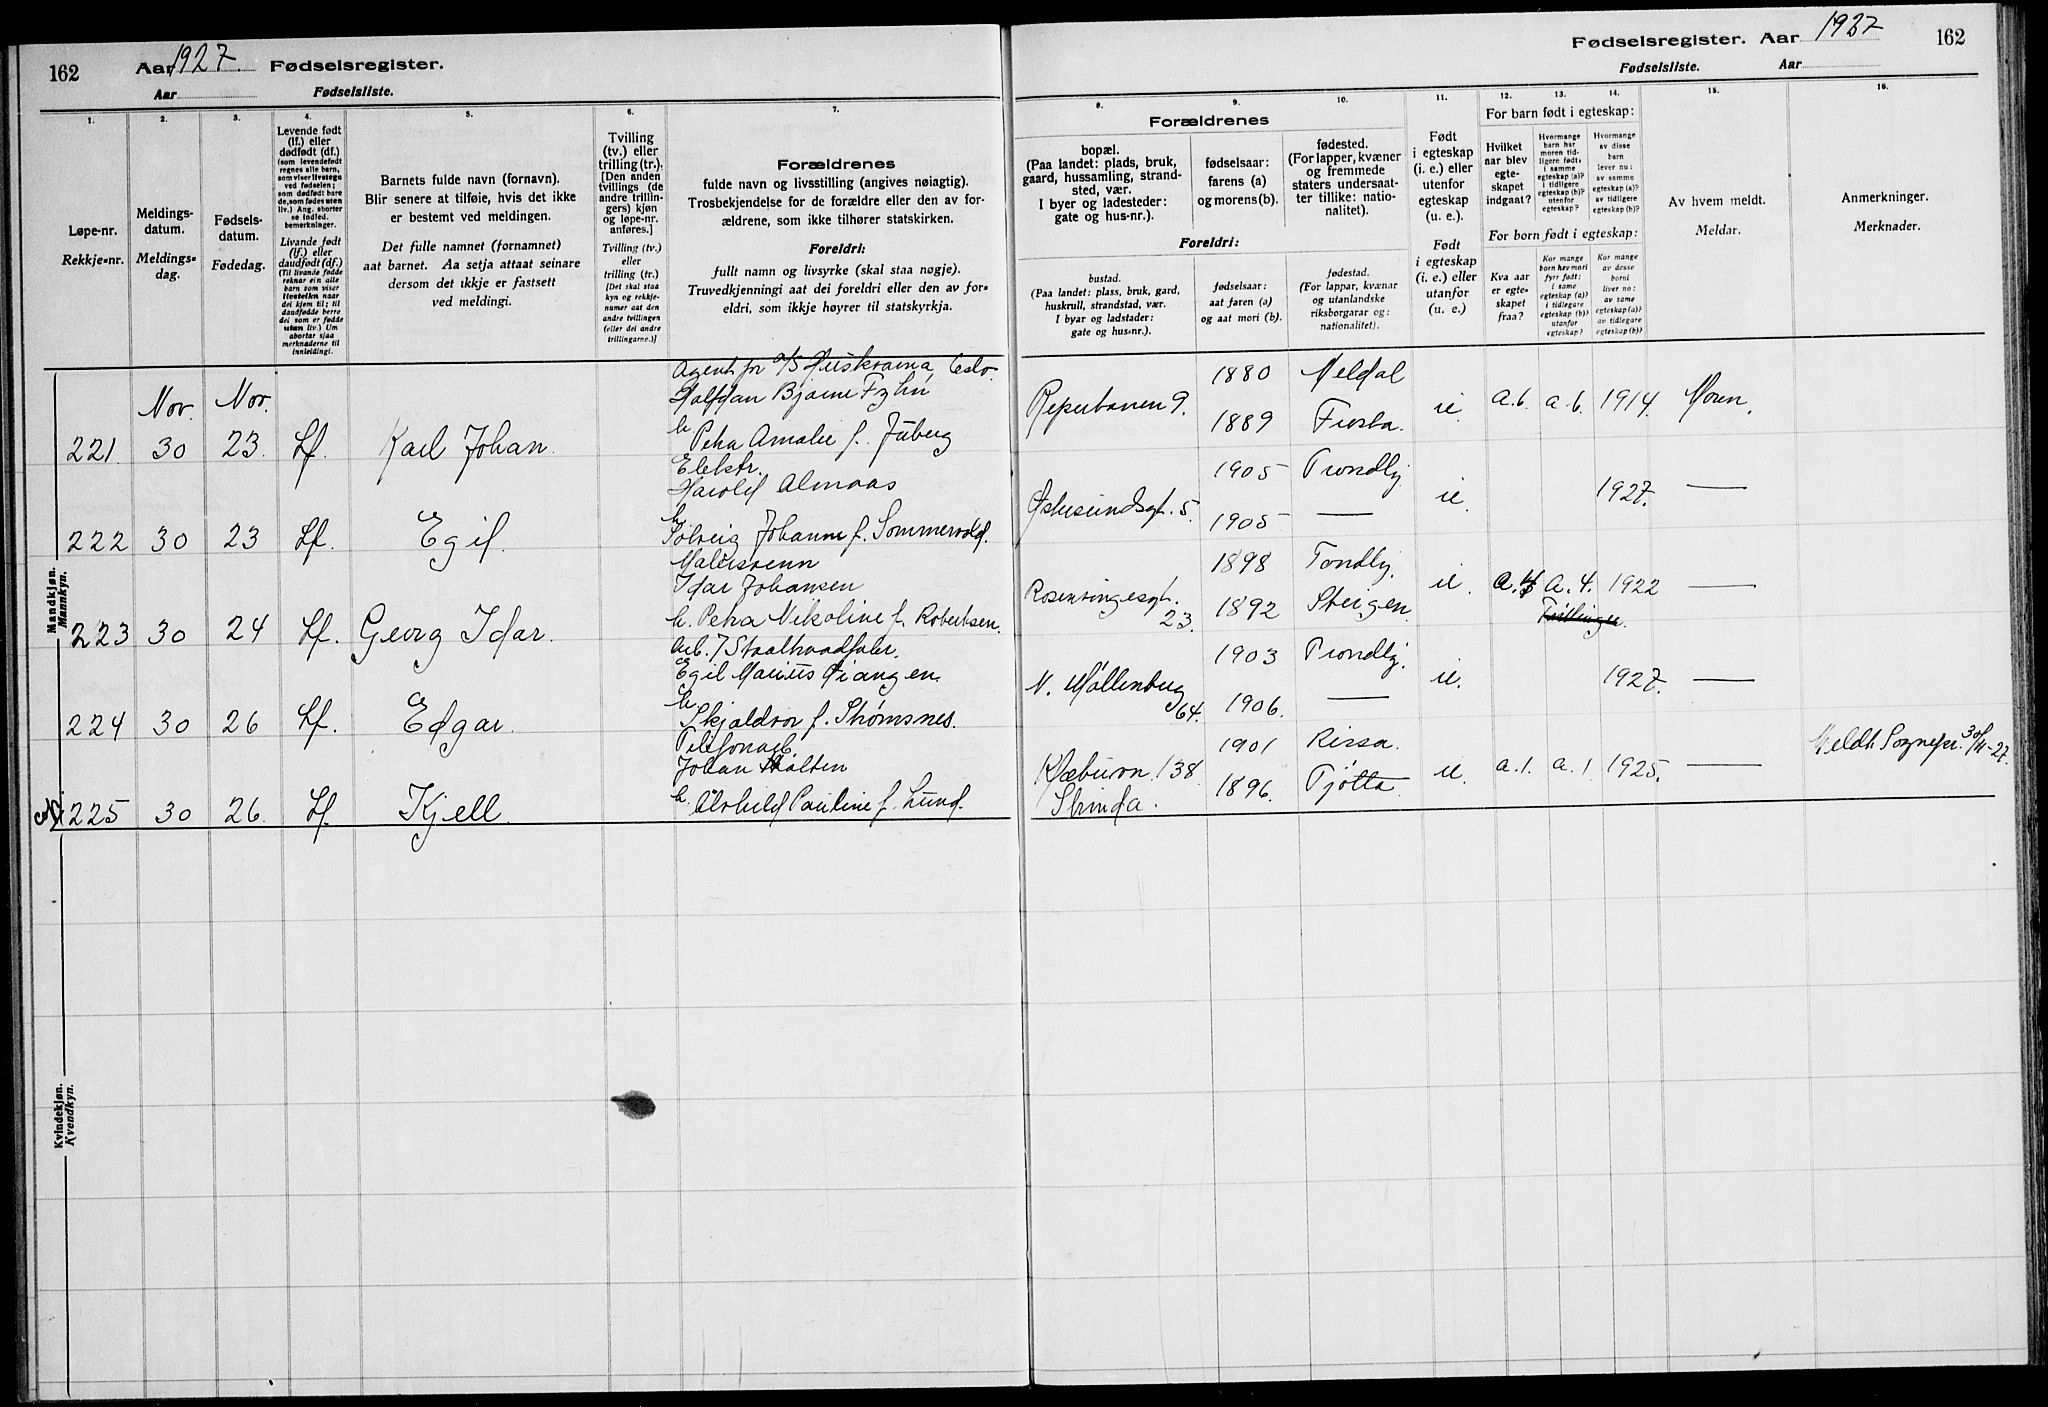 162 Aar 1927. Fødselsregister.
Aar Fødselsliste.
Fødselsregister. Aar 1927 162
Fødselsliste. Aar
1.
Løpe-nr.
Rekkje-nr.
2.
Meldings-
datum.
Meldings-
dag.
3.
Fødsels-
datum.
Fødedag.
4.
Levende født
(lf.) eller
dødfødt (df.)
(som levendefødt
regnes alle barn,
som viser livstegn
ved fødselen;
som dødfødt bare
de, som fødes uten
liv.) Ang. aborter
se indled.
bemerkninger.
Livande født
(lf.) eller
daudfødt (df.)
(Til livande fødde
reknar ein alle
barn som viser
livsteikn naar
dei kjem til; til
daudfødde berre
dei som er fødde
utan liv.) Um
abortar sjaa
merknaderne til
innleiding).
5.
Barnets fulde navn (fornavn).
Blir senere at tilføie, hvis det ikke
er bestemt ved meldingen.
Det fulle namnet (fornamnet)
aat barnet. Aa setja attaat seinare
dersom det ikkje er fastsett
ved meldingi.
6.
Tvilling
(tv.) eller
trilling (tr.).
[Den anden
tvillings (de
andre trillin-
gers) kjøn
og løpe-nr.
anføres.]
Tvilling (tv.)
eller
trilling (tr.)
[Det skal staa
kyn og rekkje-
numer aat den
andre tvillingen
(eller dei andre
trillingarne.)]
7.
Forældrenes
fulde navn og livsstilling (angives nøiagtig).
Trosbekjendelse for de forældre eller den av for-
ældrene, som ikke tilhører statskirken.
Foreldri:
fullt namn og livsyrke (skal staa nøgje).
Truvedkjenningi aat dei foreldri eller den av for-
eldri, som ikkje høyrer til statskyrkja.
8.
Forældrenes
bopæl.
(Paa landet: plads, bruk,
gaard, hussamling, strand-
sted, vær.
I byer og ladesteder:
gate og hus-nr.).
Foreldri:
bustad.
(Paa landet: plass, bruk, gard,
huskrull, strandstad, vær.
I byar og ladstader:
gate og hus-nr.).
9.
fødselsaar:
farens (a)
og morens (b).
fødselsaar:
aat faren (a)
og aat mori (b).
10.
fødested.
(For lapper, kvæner
og fremmede
staters undersaat-
ter tillike: natio-
nalitet).
fødestad.
(For lappar, kvænar
og utanlandske
riksborgarar og:
nationalitet).
11.
Født
i egteskap
(i. e.) eller
utenfor
egteskap
(u. e.).
Født
i egteskap
(i. e.) eller
utanfor
(u. e.)
12. 13. 14.
For barn født i egteskap:
Hvilket
aar blev
egte-
skapet
indgaat?
Hvormange
barn har
moren tid-
ligere født:
i samme
egteskap (a)?
i tidligere
egteskap (b)?
utenfor
egteskap?
Hvormange
av disse
barn
lever nu:
av samme
egteskap (a)?
av tidligere
egteskap (b)?
For born født i egteskap:
Kva aar
er egte-
skapet
fraa?
Kor mange
born hev mori
fyrr født:
i same
egteskap (a)?
i tidlegare
egteskap (b)?
utanfor
egteskap?
Kor mange
av desse
borni
liver no:
av same
egteskap (a)?
av tidlegare
egteskap (b)?
15.
Av hvem meldt.
Meldar.
16.
Anmerkninger.
Merknader.
Mandkjøn.
Mannkyn.
Nov. Nov.
Agent for A/S Huskvarna, Oslo.
Halfdan Bjarne Fzhn
221. 30 23. Lf. Karl Johan. h. Petra Amalie f. Juberg
Reperbanen 9. 1880 Meldal
1889 Frosta. ie. a.6. a.6. 1914. Moren.
Elektr.
Harold Almaas
222 30 23 Lf. Egil. h. Solveig Johanne f. Sommervold.
Østersundsgt. 5. 1905 Trondhj.
1905 — ie. 1927. —
Malersvenn
Idar Johansen
223 30 24 Lf. Georg Idar. h. Petra Nikoline f. Robertsen.
Rosenvingesgt. 23. 1898 Trondhj.
1892 Steigen. ie. a.4 a.4. 1922 —
Tvillinger.
Arb. / Staaltraadfabr.
Egil Marius Giangen
224 30 26 Lf. Edgar. h. Skjaldvor f. Strømsnes.
N. Møllenberg 64. 1903 Trondhj.
1906. — ie. 1927. —
Telefonarb.
Johan Holten
225 30 26. Lf. Kjell. h. Alvhild Pauline f. Lund.
Klæbuvn. 138 Strinda. 1901 Rissa.
1896. Tjøtta ie. a.1. a.1 1925. — Meldt Sognepr. 30/11-27.
Kvindekjøn.
Kvendkyn.